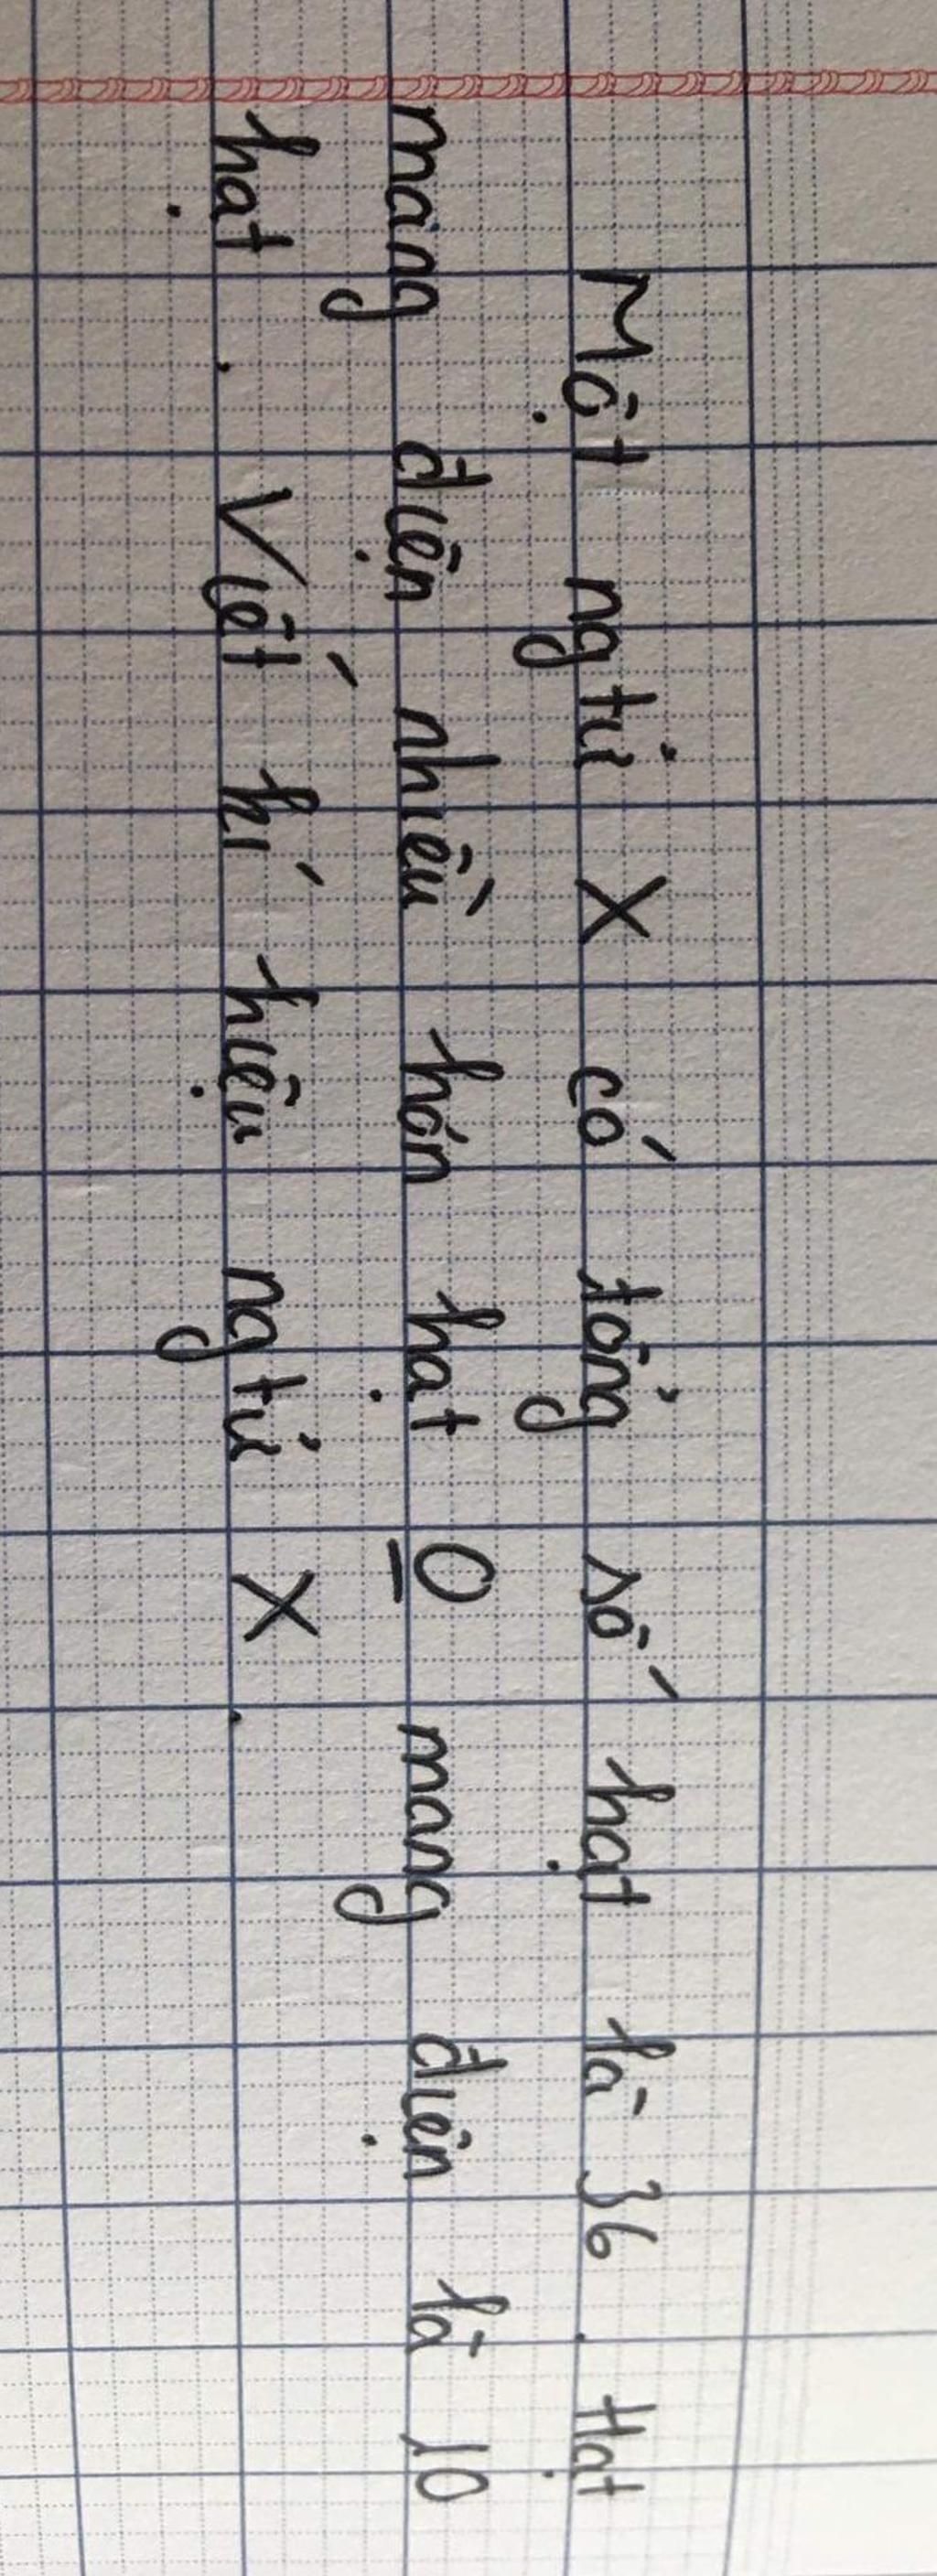 Một ngtử X có tổng số hạt là 36. Hạt
mang điện nhiều hơn hạt 0 mang điện là 10
hạt. Viết kí hiệu ngtử X.